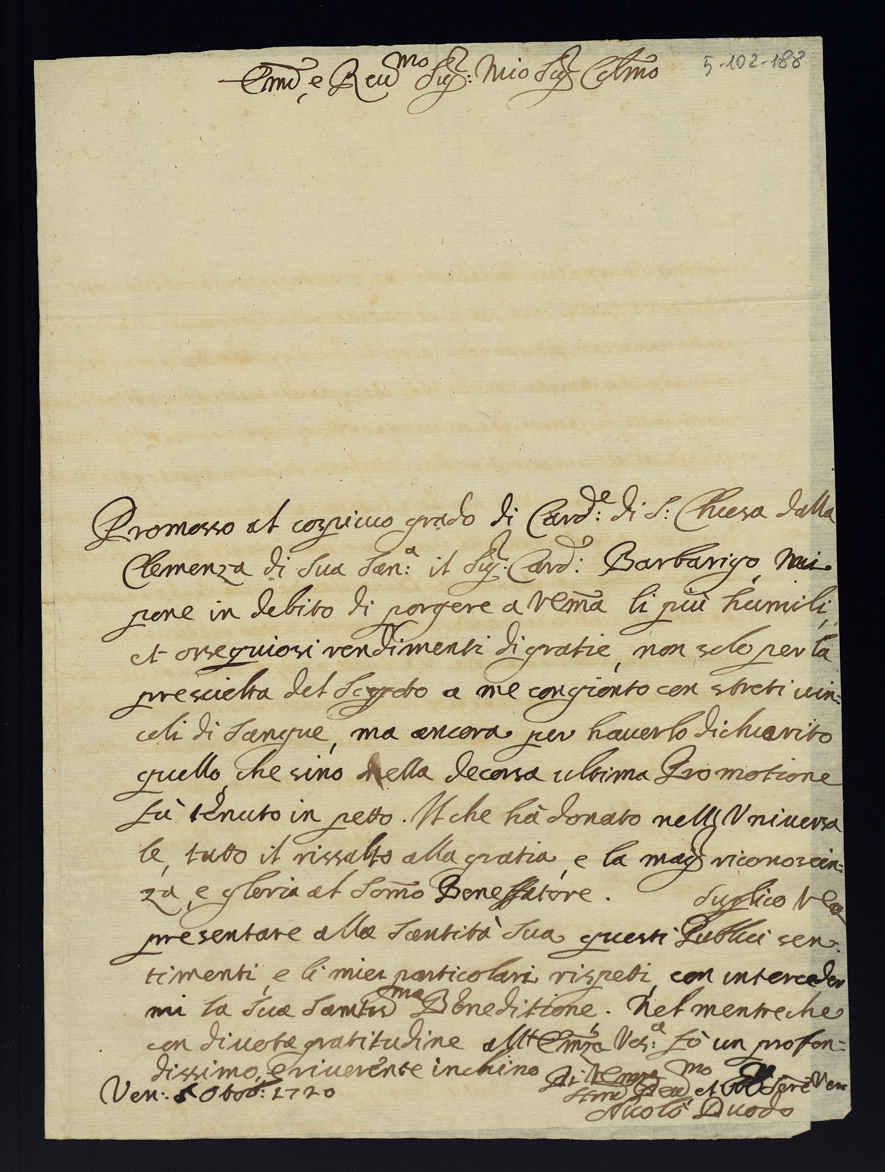 5-102-188
Emo, e Reumo Sigr: Mio Sigr Colmo
Promosso al cospicuo grado di Carde: di S: Chiesa dalla
Clemenza di Sua Sana: il Sigr: Card: Barbarigo, mi
pone in debito di porgere a VEma li più humili,
et ossequiosi rendimenti di gratie, non solo per la
prescielta del Sogeto a me congionto con streti uin=
coli di Sangue, ma ancora per hauerlo dichiarito
quello, che sino nella decorsa ultima Promotione
fù tenuto in petto. Il che hà donato nell'Vniuersa
le, tutto il rissalto alla gratia, e la magr riconoscin=
za, e gloria al Somo Beneffatore. Suplico VEa
presentare alla Santità Sua questi Publici sen=
timenti, e li miei particolari rispetti, con interceder
mi la Sua Santisma Beneditione. Nel mentre che
con diuota gratitudine all'Emza Vosa: fò un profon=
dissimo, e riuerente inchino
Ven: 5 Obre: 1720
Di VEmza
mo et Serre Vero
Nicolò Duodo